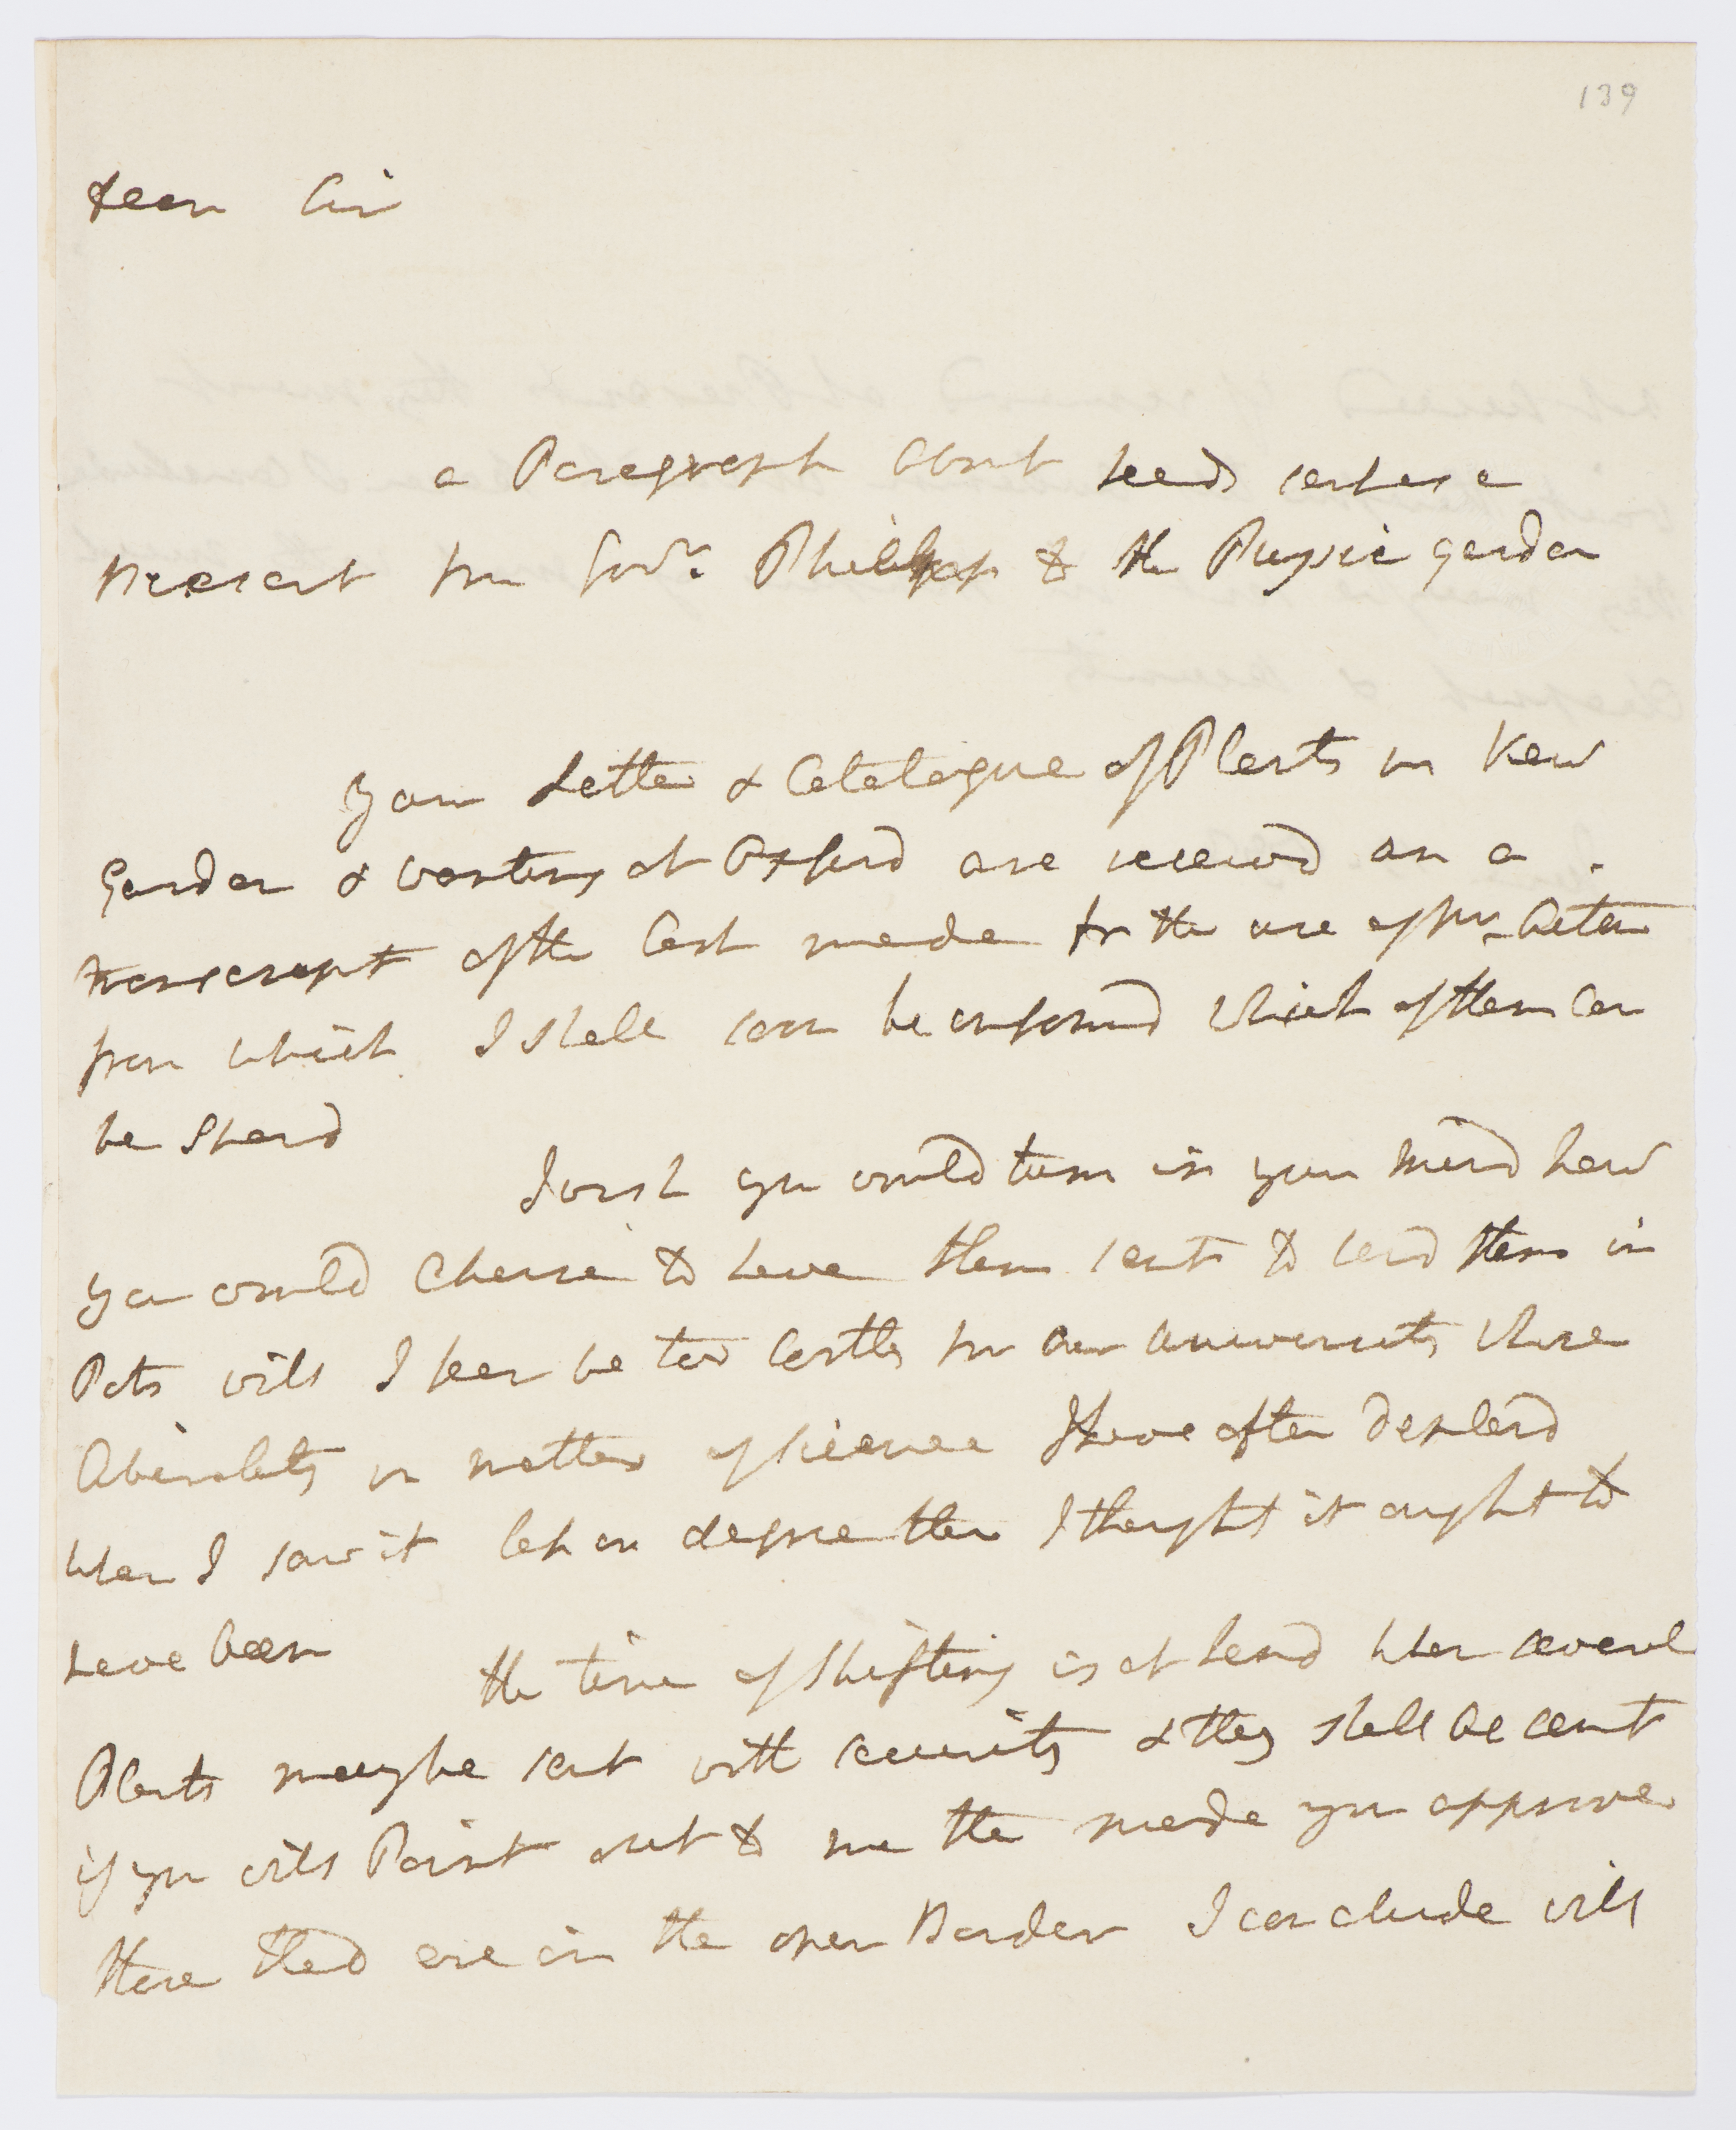 139
Dear Sir
a Paragraph about seeds sent as a
present from Govr. Phillips to the Physic garden
Your Letter & Catalogue of Plants in Kew
Garden & wanting at Oxford are receivd on a
transcript of the last made for the use of Mr. Aiton
from which I shall soon be informd which of them Can
be Spard
I wish you would turn in your mind how
you would Chuse to have them sent to send them in
Pots will I fear be too Costly for our universities whose
in matters of science I have often deplord
when I saw it less in degree than I thought it ought to
have been
the time of Shifting is at hand when several
Plants may be sent with security & they shall be sent
if you will Point out to me the mode you approve
those that are in the open Border I conclude will